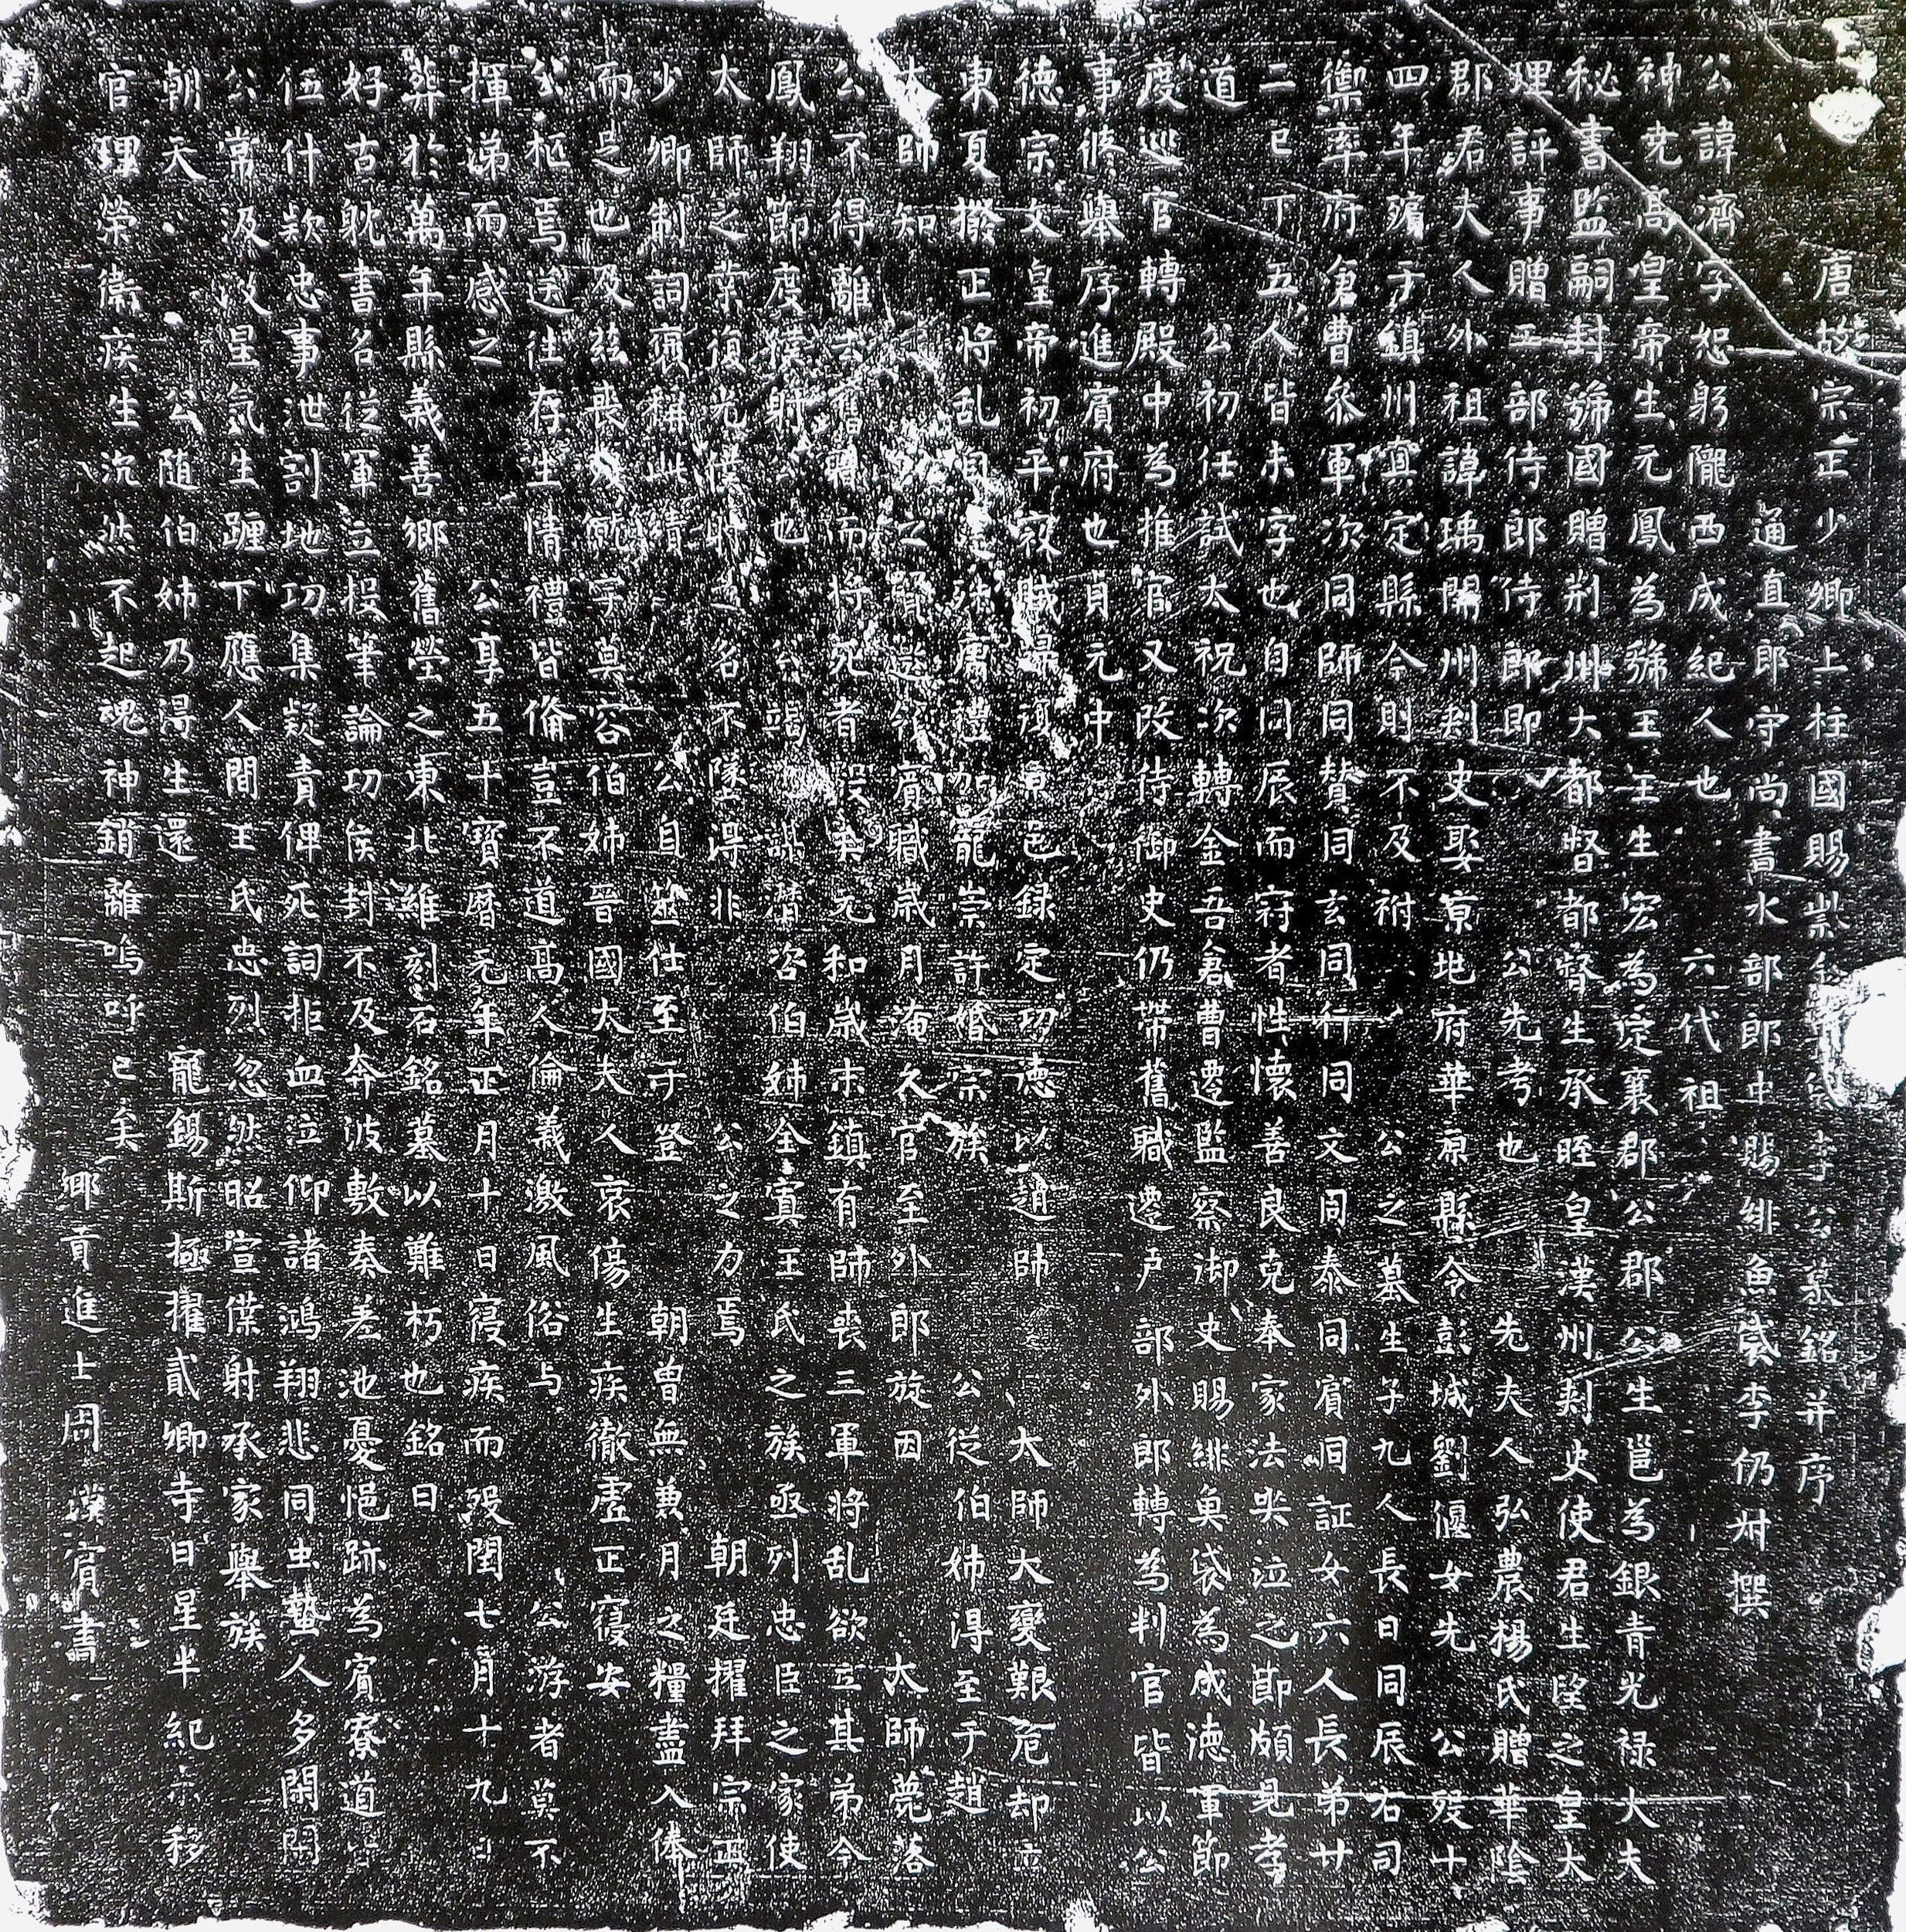 唐故宗正少卿上柱國賜紫金李公墓銘并序
通直郎守尚書水部郎中賜緋魚袋李仍叔撰
公諱濟字恕躬隴西成紀人也六代祖
神堯高皇帝生元鳳為虢王王生宏為定襄郡公郡公生邕為銀青光祿大夫
秘書監嗣封虢國贈荊州大都督都督生承晊皇漢州刾史使君生望之皇大
理評事贈工部侍郎侍郎即公先考也先夫人弘農楊氏贈華陰
郡君夫人外祖諱瑀閬州刾史娶京地府華原縣令彭城劉偃女先公歿十
四年殯于鎮州真定縣今則不及祔公之墓生子九人長日同辰右司
禦率府倉曹叅軍次同師同贊同玄同行同文同泰同賓同証女六人長弟廿
二已丁五人皆未字也自同辰而冠者性懷善良克奉家法哭泣之節頗見孝
道公初任試太祝次轉金吾倉曹遷監察御史賜緋魚袋為成德軍節
度巡官轉殿中為推官又改侍御史仍帶舊職遷戶部外郎轉為判官皆以公
事修舉序進賓府也貞元中
德宗文皇帝初平寇賊録定功德以趙帥大師大變艱危却立
東夏撥正將乱加寵崇許婚宗族公從伯姉得至于趙
大師知賓職歲月淹久官至外郎旋因太師薨落
公不得離去舊而將死者殁矣元和歲末鎮有師喪三軍將乱欲立其弟今
鳳翔節度僕射也公竭咨伯姉全寘王氏之族亟列忠臣之家使
太師之業復光名不墜得非公之力焉朝廷擢拜宗正
少卿制詞襃稱此績公自筮仕至于登朝曽無兼月之糧盡入俸
而足也及茲喪歿就字莫容伯姉晉國太夫人哀傷生疾徹虛正寢安
公柩焉送往存生情禮皆俻豈不道髙人倫義激風俗与公游者莫不
揮涕而感之公享五十寶曆元年正月十日寢疾而歿閏七月十九日
葬於萬年縣義善鄉舊塋之東北維刻石銘墓以難朽也銘曰
好古躭書名從軍立投筆論功矦封不及奔波敷奏差池憂悒跡為賓寮道
伍什欵忠事泄割地功集疑責俾死詞拒血泣仰諸鴻翔悲同虫蟄人多閑閉
公常及政星氣生躔下應人間王氏忠烈忽然昭宣僕射承家舉族
朝天公随伯姉乃得生還寵錫斯極擢貳卿寺日星半紀亦移
官理榮衛疾生沉然不起魂神銷離嗚呼已矣
鄉貢進士周漢賓書